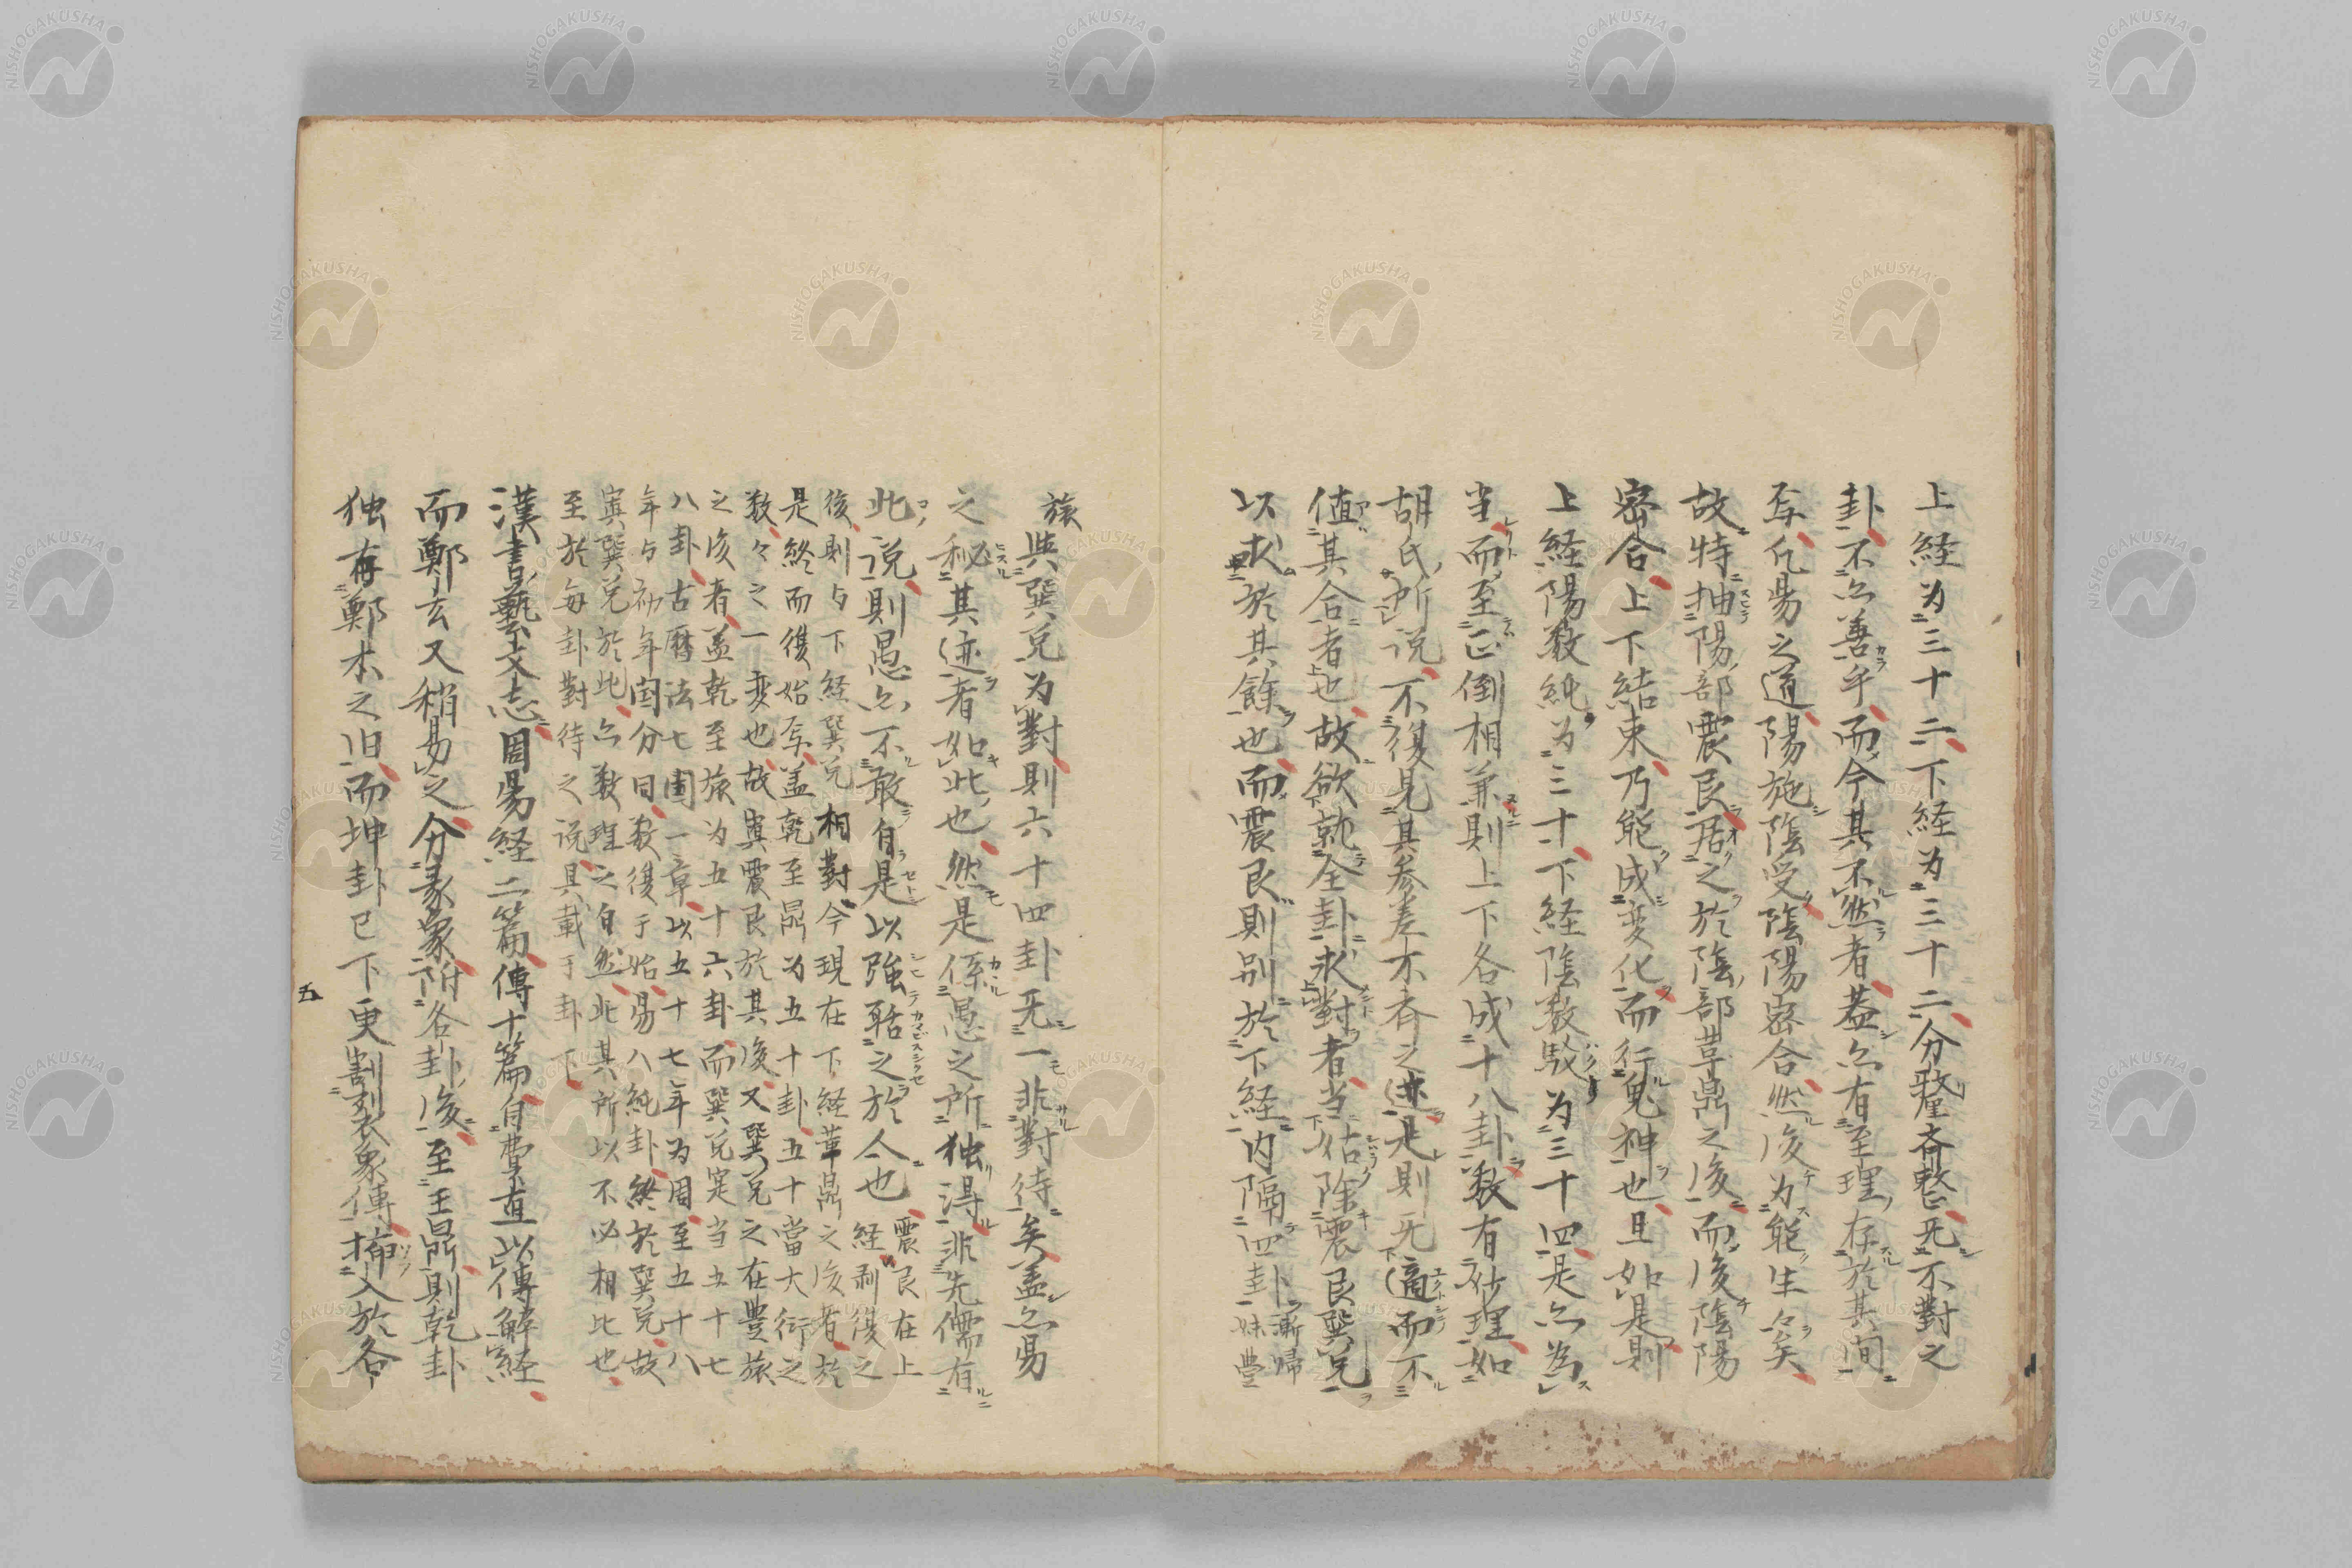 上経为三十二下経为三十二分釐斉整无不對之
卦不亦善乎而今其不然者蓋亦有至理存於其間
焉凡易之道陽施陰受陰陽密合然後为能生々矣
故特抽陽部震艮居之於陰部革鼎之後而後陰陽
密合上下結束乃能成変化而行鬼神也且如是則
上経陽数純为三十下経陰数駁为三十四是亦為
当而至正倒相兼則上下各成十八卦数有妙理如
胡氏所说不復見其参差不斉之迹是則无適而不
值其合者也故欲就全卦求對者当姑除震艮巽兌
以求於其餘也而震艮則别於下経内隔四卦漸歸
妹豊
旅與巽兑为對則六十四卦无一非對待矣盖亦易
之秘其迹者如此也然是係愚之所独得非先儒有
此说則愚亦不敢自是以強聒之於人也震艮在上
経剥復之
後則与下経巽兑相對今現在下経革鼎之後者於
是終而復始焉盖乾至鼎为五十卦五十當大衍之
数々之一変也故寘震艮於其後又巽兑之在豊旅
之後者盖乾至旅为五十六卦而巽兑寔当五十七
八卦古暦法七閏一章以五十七年为周至五十八
年与初年閏分同数復于始易八純卦終於巽兑故
寘巽兑於此亦数理之自然此其所以不必相比也
至於每卦對待之说具載于卦下
漢書藝文志周易経二篇傳十篇自費直以傳解経
而鄭玄又稍易之分彖象附各卦後至王弼則乾卦
独存鄭本之旧而坤卦已下更割裂彖傳挿入於各
五
NISHOGAKUSHA